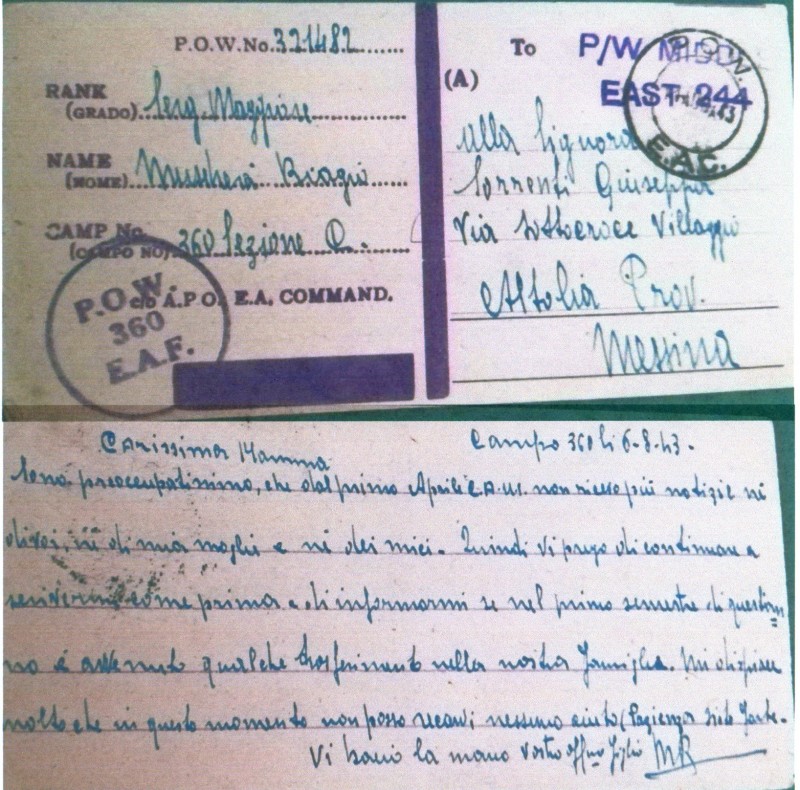 P.O.W.No. 321482
RANK
(GRADO) Serg Maggiore
NAME
(NOME) Muscherà Biagio
CAMP No.
(CAMPO NO) 360 Sezione
c/o A.P.O. E.A. COMMAND.
P.O.W.
360
E.A.F.
To P/W MIDD
(A) EAST 244
P.O.W.
43
E.A.C.
Alla Signora
Sorrenti Giuseppa
Via Sottocroce Villaggio
Prov.
Messina
Carissima Mamma Campo 360 li 6-8-43-
Sono preoccupatissimo, che dal primo Aprile non ricevo più notizie nè
di voi, nè di mia moglie e nè dei miei. Quindi vi prego di continuare a
scrivermi come prima e di informarmi se nel primo semestre di quest'an=
no è avvenuto qualche trasferimento nella nostra famiglia. Mi dispiace
molto che in questo momento non posso recarvi nessuno aiuto (Pazienza
Vi bacio la mano vostro aff.mo figlio